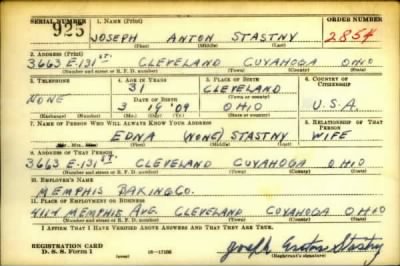 SERIAL NUMBER 1. NAME (Print) ORDER NUMBER
925 JOSEPH ANTON STASTNY 2854
(First) (Middle) (Last)
2. ADDRESS (Print)
3663 E-131 ST. CLEVELAND CUYAHOGA OHIO
(Number and street or R. F. D. number) (Town) (County) (State)
3. TELEPHONE 4. AGE IN YEARS 5. PLACE OF BIRTH 6. COUNTRY OF CITIZENSHIP
31 CLEVELAND
NONE DATE OF BIRTH (Town or county)
3 19 '09 OHIO U.S.A
(Exchange) (Number) (Mo.) (Day) (Yr.) (State or country)
7. NAME OF PERSON WHO WILL ALWAYS KNOW YOUR ADDRESS 8. RELATIONSHIP OF THAT PERSON
EDNA (NONE) STASTNY WIFE
(First) (Middle) (Last)
9. ADDRESS OF THAT PERSON
3663 E-131 ST. CLEVELAND CUYAHOGA OHIO
(Number and street or R. F. D. number) (Town) (County) (State)
10. EMPLOYER'S NAME
MEMPHIS BAKING CO.
11. PLACE OF EMPLOYMENT OR BUSINESS
4114 MEMPHIS AVE. CLEVELAND CUYAHOGA OHIO
(Number and street or R. F. D. number) (Town) (County) (State)
I AFFIRM THAT I HAVE VERIFIED ABOVE ANSWERS AND THAT THEY ARE TRUE.
REGISTRATION CARD
D. S. S. Form 1 (over) Joseph Anton Stastny